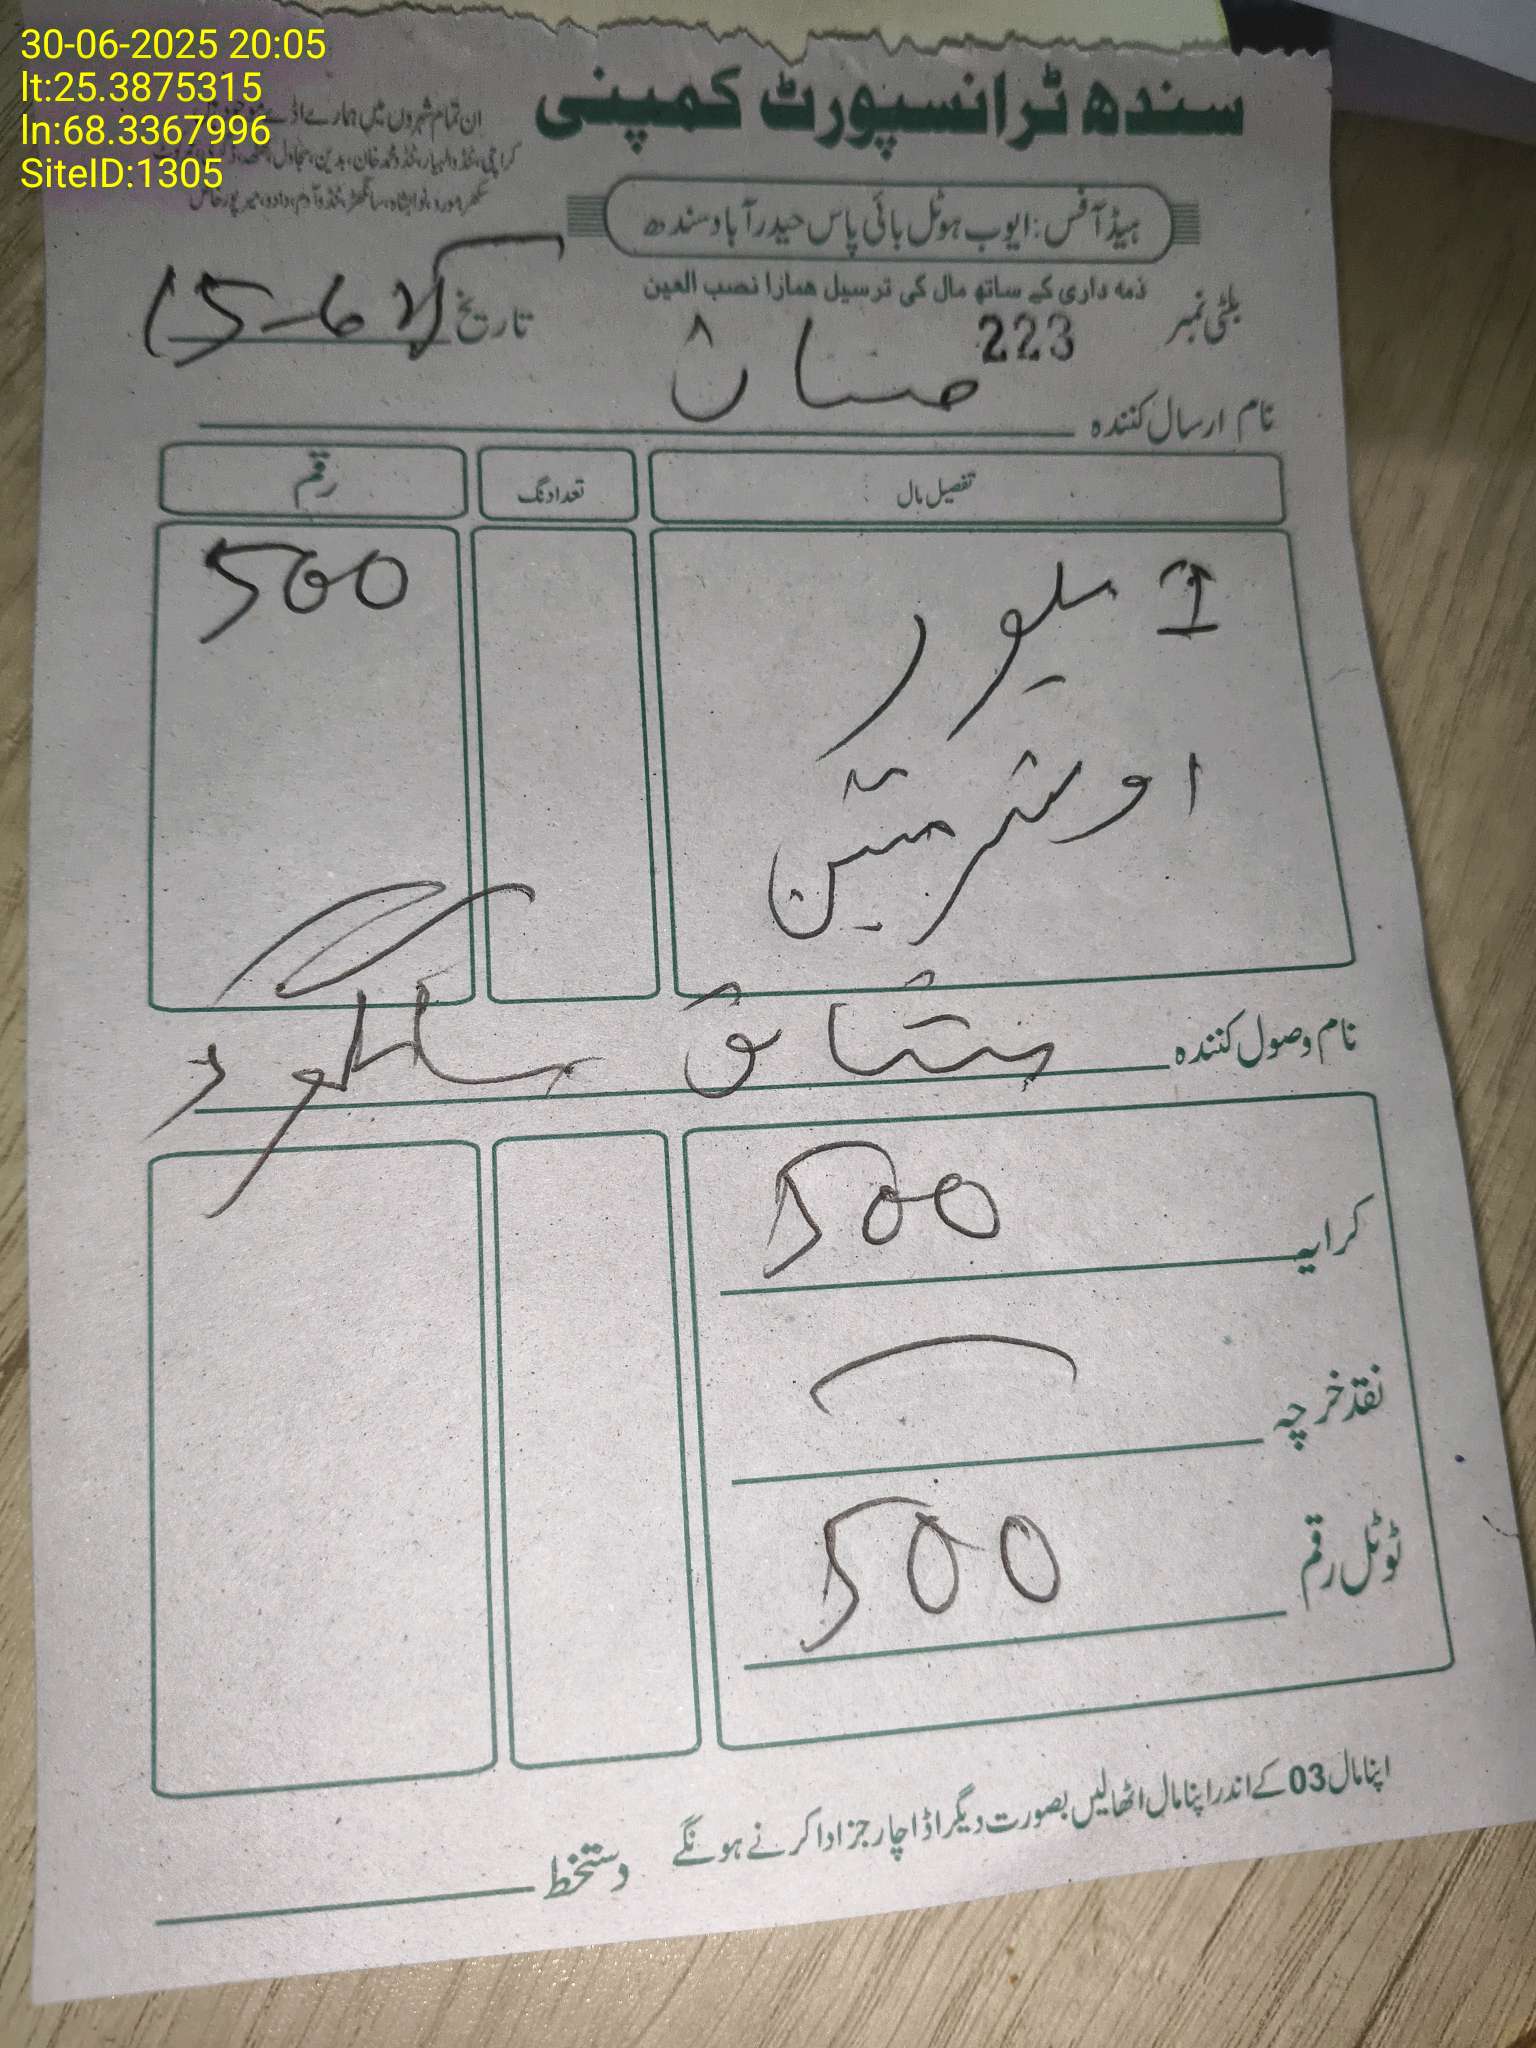 30-06-2025 20:05
lt:25.3875315
ln:68.3367996
SiteID:1305
سندھ ٹرانسپورٹ کمپنی
ان تمام شہروں میں ہمارے اڈے
کراچی، ٹنڈوالہیار، ٹنڈومحمدخان، بدین، سجاول،
سکھر، مورو، نوابشاہ، سانگھڑ، ٹنڈوآدم، دادو، میرپورخاص
ہیڈ آفس: ایوب ہوٹل بائی پاس حیدرآباد سندھ
ذمہ داری کے ساتھ مال کی ترسیل ہمارا نصب العین
بلٹی نمبر 223 تاریخ 15-6
نام ارسال کنندہ
تفصیل مال تعداد نگ رقم
1 500
نام وصول کنندہ مشتاق
کرایہ 500
نقد خرچہ
ٹوٹل رقم 500
اپنا مال 03 کے اندر اپنا مال اٹھالیں بصورت دیگر اڈا چارجز ادا کرنے ہونگے
دستخط